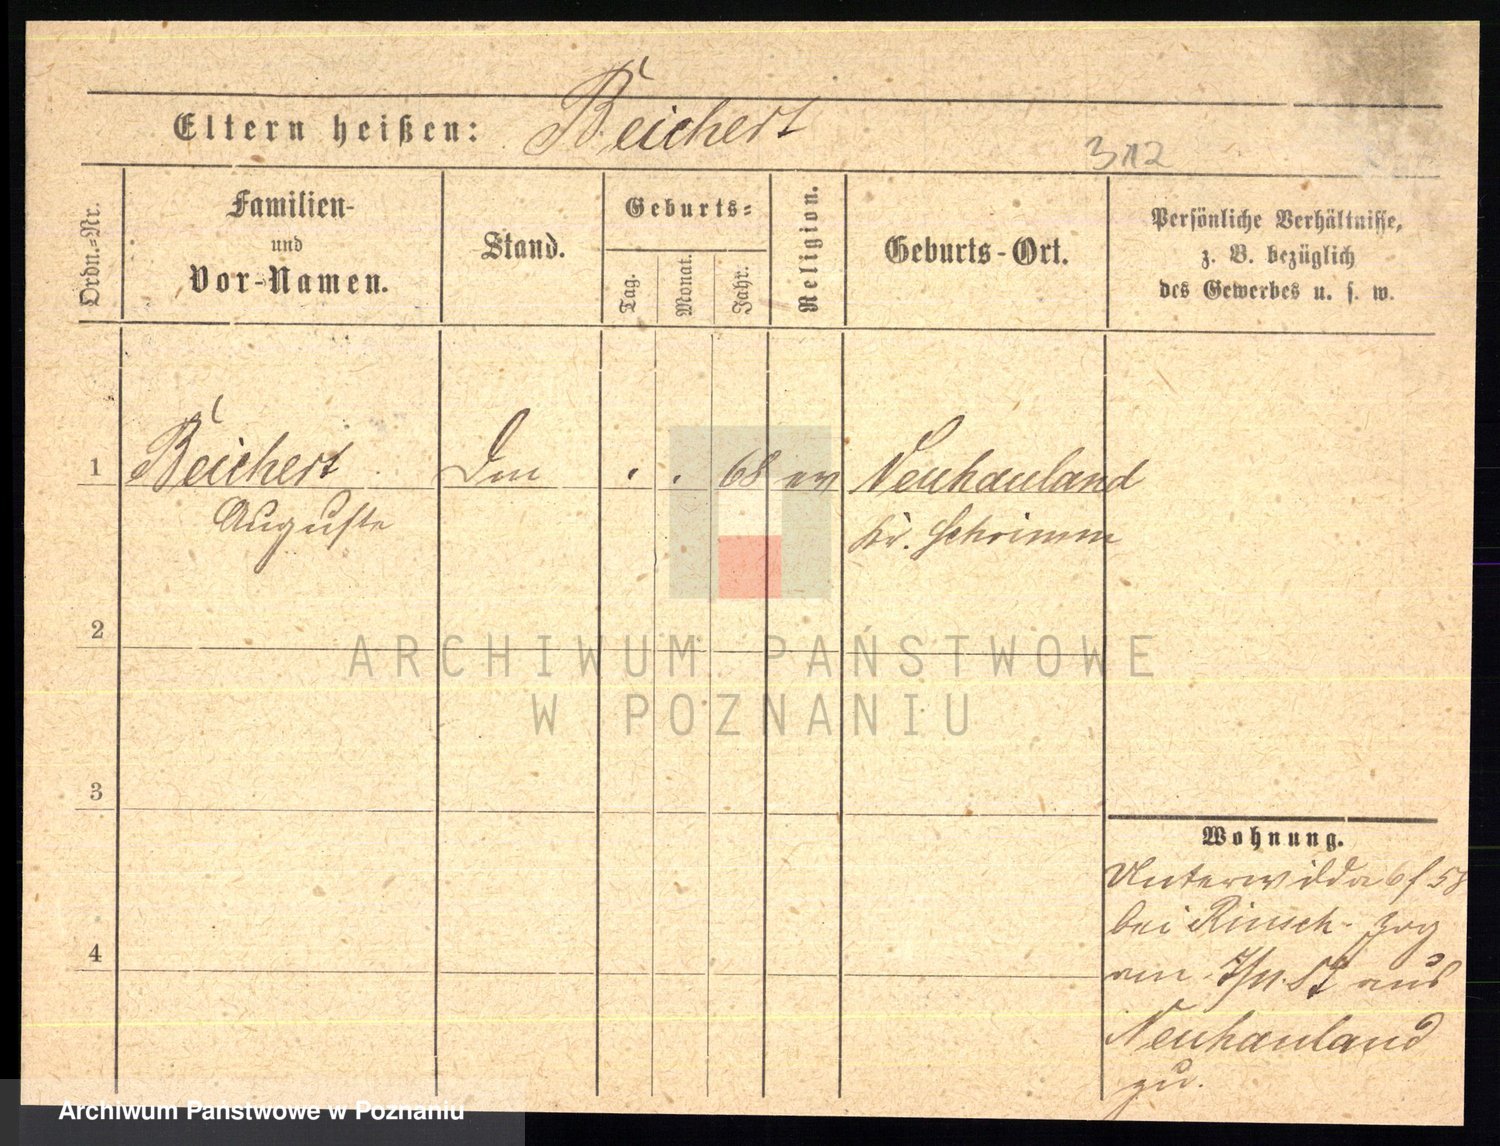 Eltern heißen: Beichert
312
Ordn.-Nr.
Familien-
und
Vor-Namen.
Stand.
Geburts-
Tag.
Monat.
Jahr.
Religion.
Geburts-Ort.
Persönliche Verhältnisse,
z. B. bezüglich
des Gewerbes u. s. w.
1 Beichert . . 68 ev Neuhauland
Auguste Kr. Schrimm
2
3
4
Wohnung.
Unterwilda 6 f 58
bei Rinsch. zog
am 7/11.87 aus
Neuhauland
zu.
ARCHIWUM PAŃSTWOWE
W POZNANIU
Archiwum Państwowe w Poznaniu